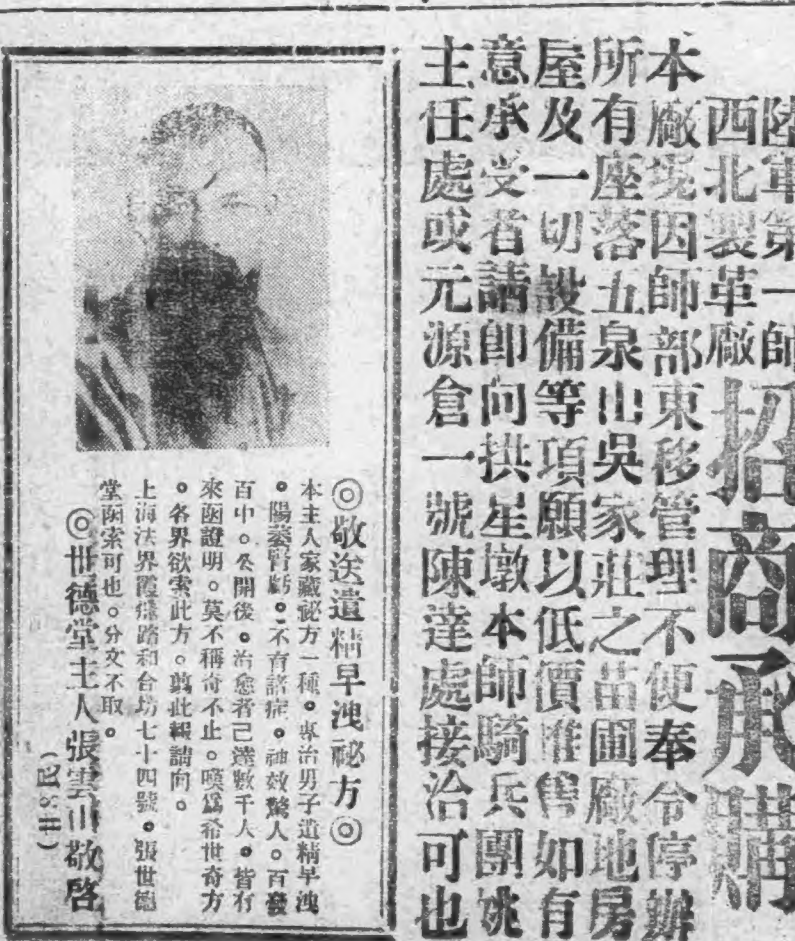 陸軍第一師
西北製革廠
招商承購
本廠現因師部東移管理不便奉令停辦
所有座落五泉山吳家莊之苗圃廠地房
屋及一切設備等項願以低價推售如有
意承受者請卽向拱星墩本師騎兵團姚
主任處或元源倉一號陳達處接洽可也
◎敬送遺精早洩祕方◎
本主人家藏祕方一種。專治男子遺精早洩
。陽萎腎虧。不育諸症。神效驚人。百發
百中。公開後。治愈者已達數千人。皆有
來函證明。莫不稱奇不止。嘆爲希世奇方
。各界欲索此方。剪此報請向。
上海法界霞飛路和合坊七十四號。張世德
堂函索可也。分文不取。
◎世德堂主人張雲山敬啓